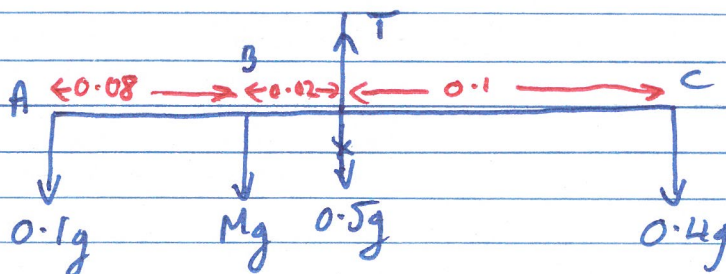 T
B
A 0.08 0.02 0.1 C
0.1g Mg 0.5g 0.4g